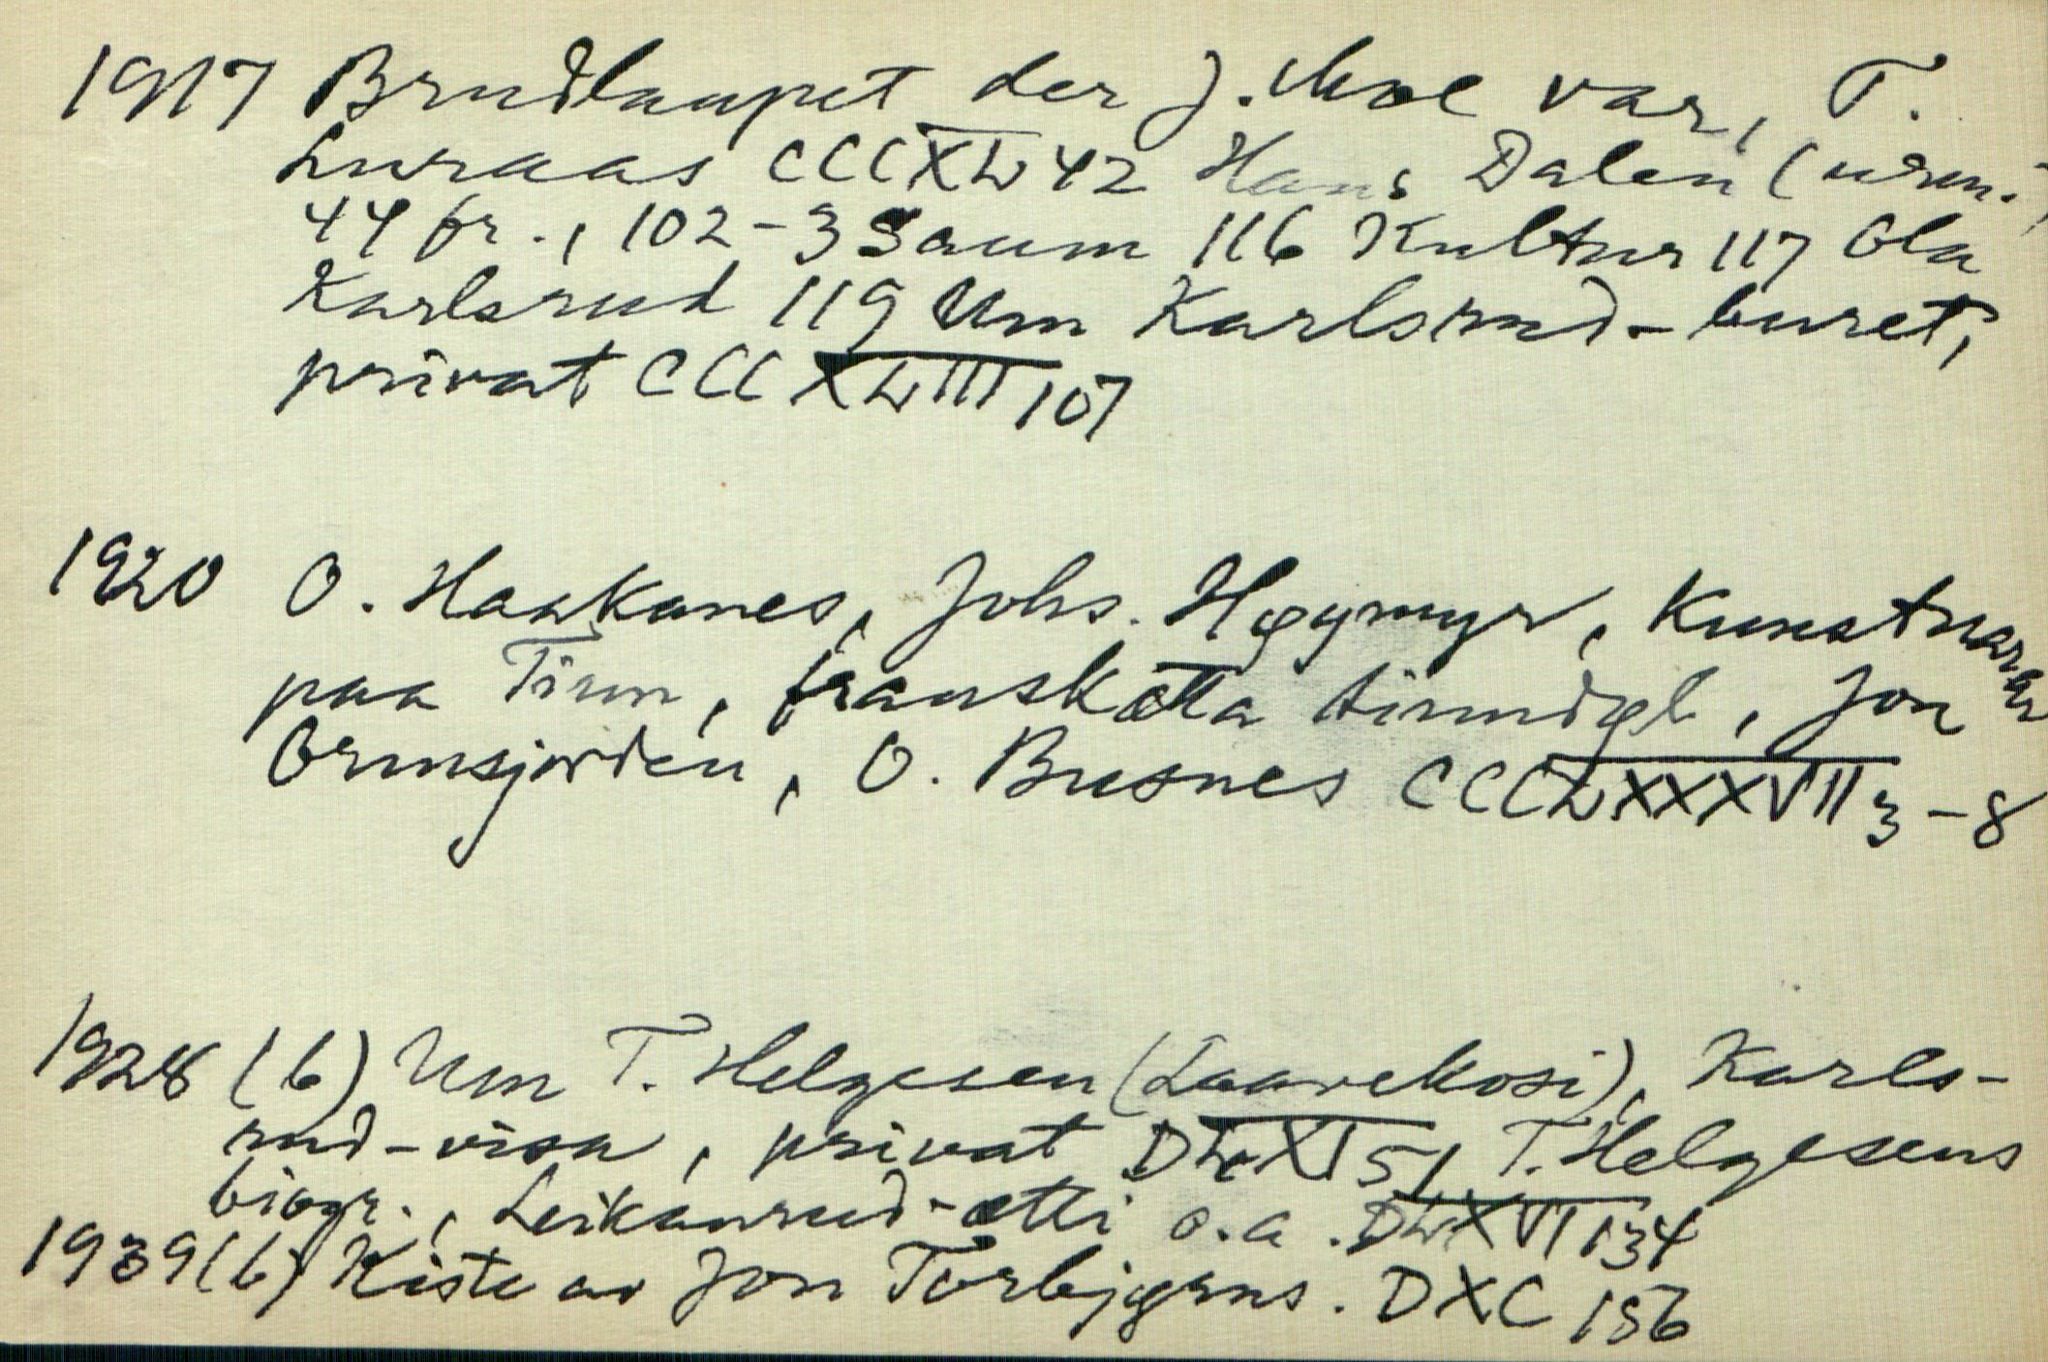 1917 Brudlaupet der J. Moe var, T.
Luraas CCCXL 42 Hans Dalen (urm.)
44 fr., 102-3 Saum 116 Kultur 117 Ola
Karlsrud 119 Um Karlsrud-buret,
privat CCCXLIII 107
1920 O. Haakanes, Johs. Høymyr, Kunstnarar
paa Tinn, franskætta tinndøl, Jon
Ormsjorden, O. Busnes CCCLXXXVII 3-8
1928 (b) Um T. Helgesen (Laarekosi), Karls-
rud-visa, privat DLXI 51 T. Helgesens
biogr., Leikanrud-ætti o.a. DLXVI 134
1939 (b) Kiste av Jon Torbjørns. DXC 156